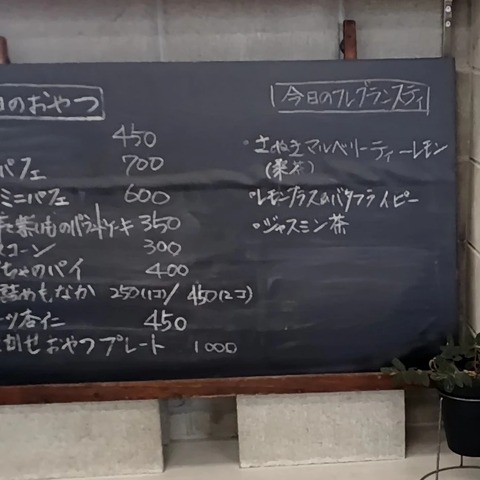 日のおやつ
450
パフェ 700
ミニパフェ 600
と紫いものパウンドケーキ 350
スコーン 300
ぼちゃのパイ 400
詰めもなか 250(1コ)/450(2コ)
ーツ杏仁 450
まかせおやつプレート 1000
今日のフレグランスティ
・さぬきマルベリーティーレモン
(桑茶)
・レモングラス&バタフライピー
・ジャスミン茶